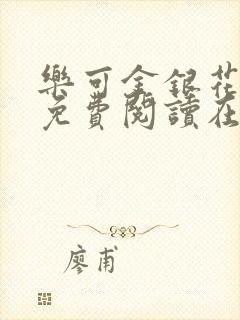 樂可金銀花
免費閱讀在
廖甫